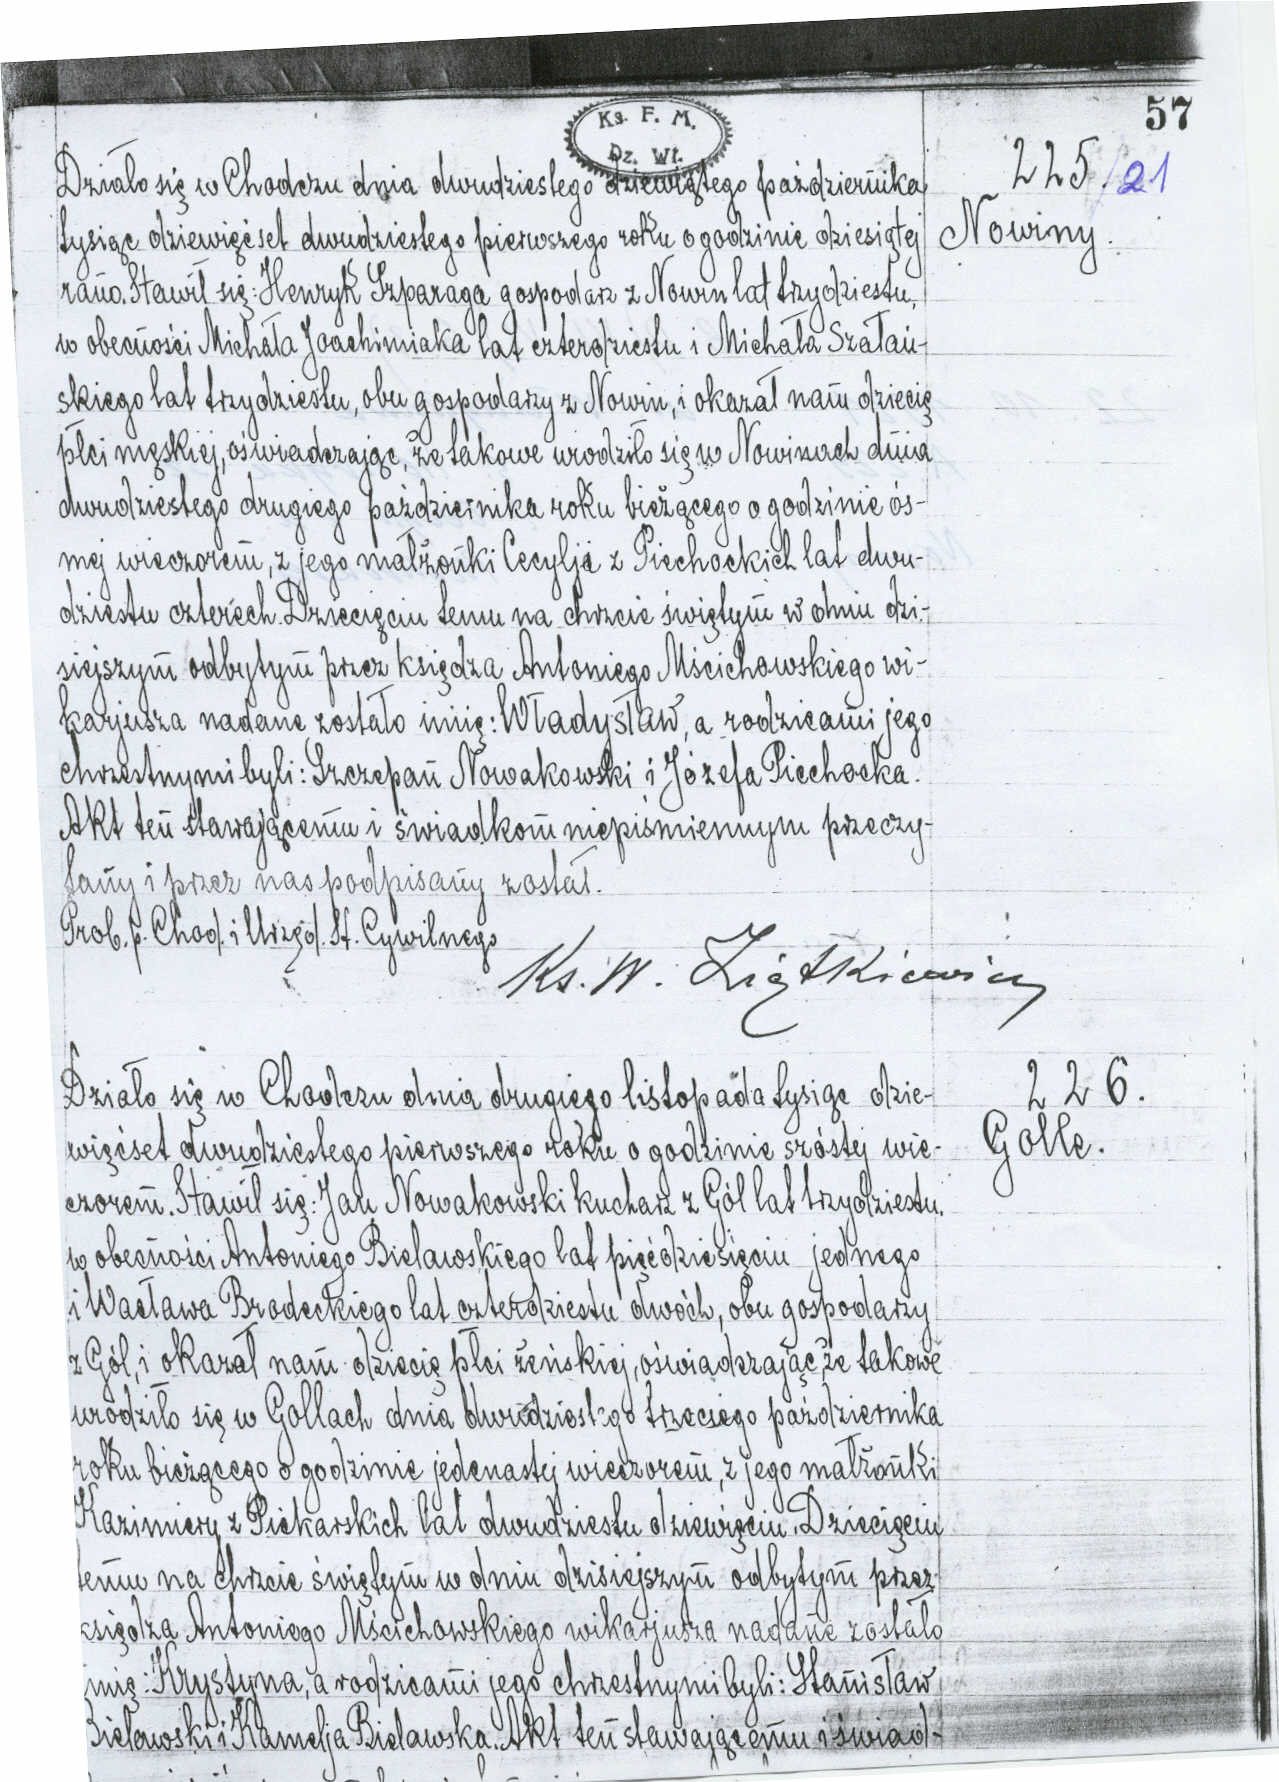 57
Ks. F. M.
Dz. Wł.
225./21
Nowiny.
Działo się w Chodczu dnia dwudziestego dziewiątego października
tysiąc dziewięćset dwudziestego pierwszego roku o godzinie dziesiątej
rano. Stawił się: Henryk Szparaga gospodarz z Nowin lat trzydziestu,
w obecności Michała Joachimiaka lat czterdziestu i Michała Szałań-
skiego lat trzydziestu, obu gospodarzy z Nowin, i okazał nam dziecię
płci męskiej, oświadczając, że takowe urodziło się w Nowinach dnia
dwudziestego drugiego października roku bieżącego o godzinie ós-
mej wieczorem, z jego małżonki Cecylji z Piechockich lat dwu-
dziestu czterech. Dziecięciu temu na chrzcie świętym w dniu dzi-
siejszym odbytym przez księdza Antoniego Mścichowskiego wi-
karjusza nadane zostało imię: Władysław, a rodzicami jego
chrzestnymi byli: Szczepan Nowakowski i Józefa Piechocka.
Akt ten stawającemu i świadkom niepiśmiennym przeczy-
tany i przez nas podpisany został.
Prob. p. Chod. i Urzęd. St. Cywilnego
Ks. W. Ziętkiewicz
226.
Golle.
Działo się w Chodczu dnia drugiego listopada tysiąc dzie-
więćset dwudziestego pierwszego roku o godzinie szóstej wie-
czorem. Stawił się: Jan Nowakowski kucharz z Gól lat trzydziestu,
w obecności Antoniego Bielawskiego lat pięćdziesięciu jednego
i Wacława Brodeckiego lat czterdziestu dwóch, obu gospodarzy
z Gól, i okazał nam dziecię płci żeńskiej, oświadczając, że takowe
urodziło się w Gollach dnia dwudziestego trzeciego października
roku bieżącego o godzinie jedenastej wieczorem, z jego małżonki
Kazimiery z Piekarskich lat dwudziestu dziewięciu. Dziecięciu
temu na chrzcie świętym w dniu dzisiejszym odbytym przez
księdza Antoniego Mścichowskiego wikarjusza nadane zostało
imię: Krystyna, a rodzicami jego chrzestnymi byli: Stanisław
Bielawski i Kamelja Bielawska. Akt ten stawającemu i świad-